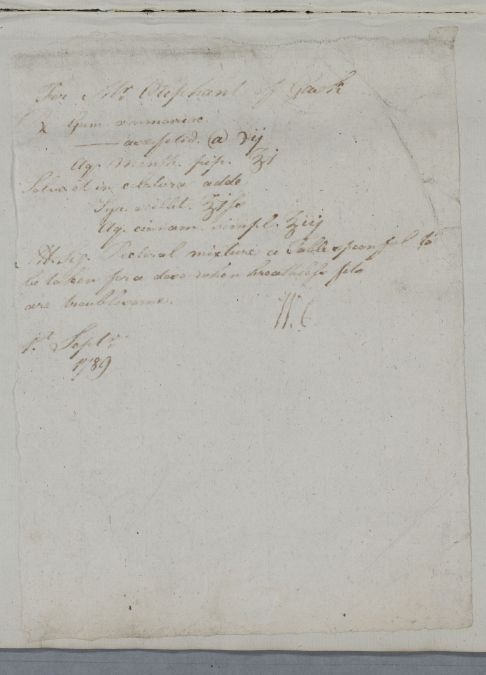 For Mr Oliphant of Gask
℞ Gum ammoniac.
—— assafetid. @ ʒij
Aq. Menth. pip. ℥j
Solve et in colatura adde
Syr. scillit. ℥jſs
Aq. cinnam. simpl. ℥iij
M. Sig. Pectoral mixture a Table spoonful to
be taken for a dose when breathless fits
are troublesome.
W. C
1st Septr
1789